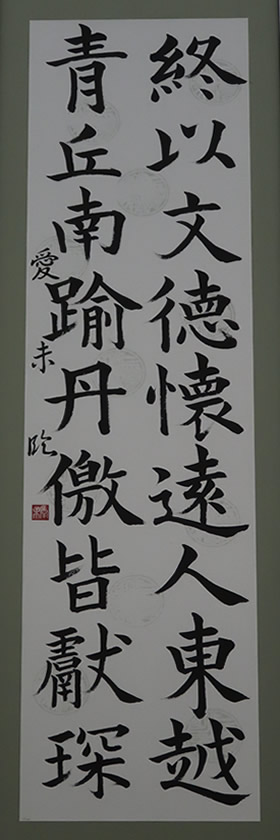 終以文德懷遠人東越
青丘南踰丹儌皆獻琛
愛未臨